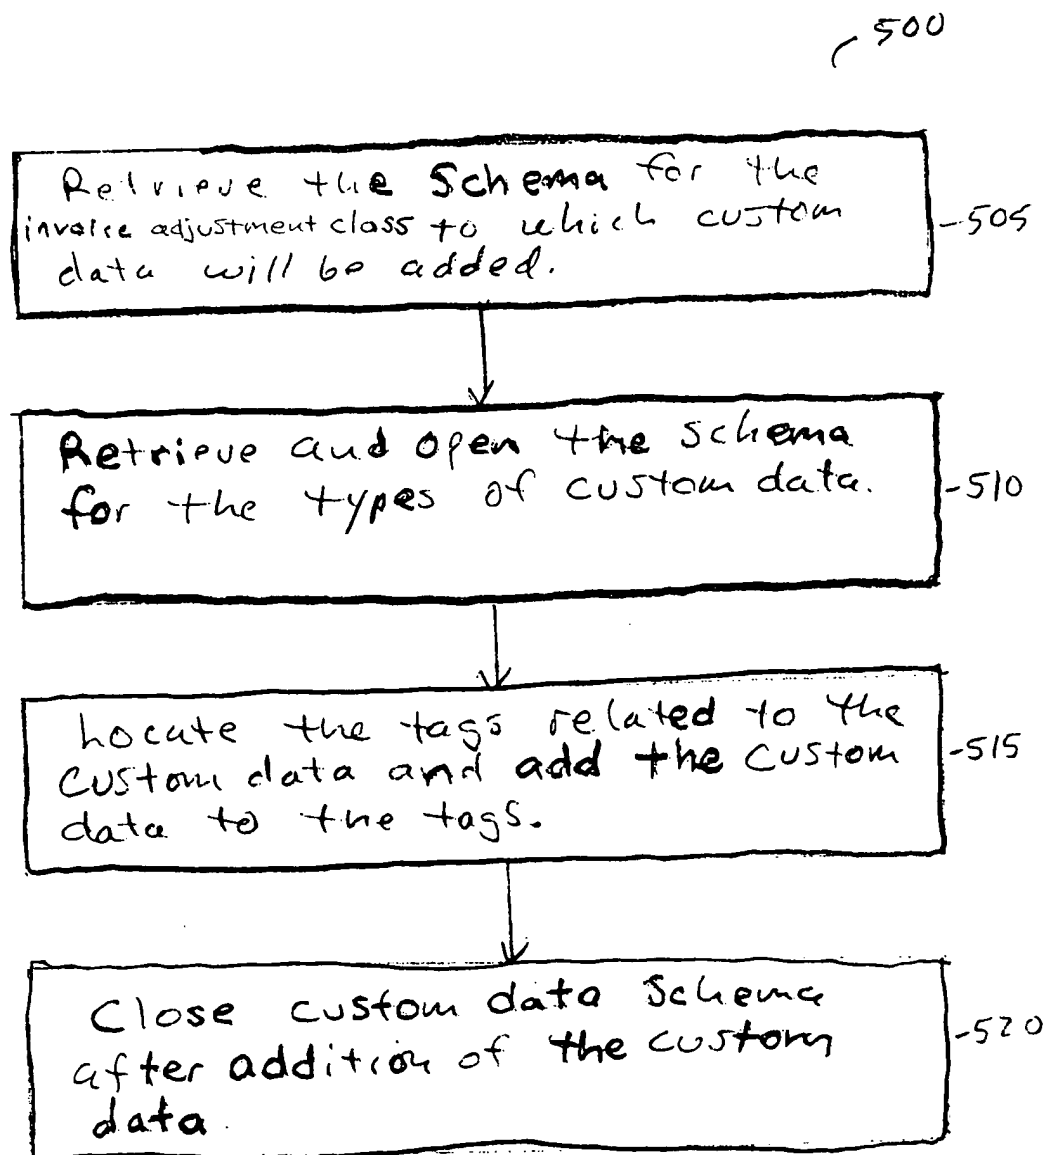 500
Retrieve the Schema for the
invoice adjustment class to which custom
data will be added.
-505
Retrieve and open the schema
for the types of custom data.
-510
Locate the tags related to the
custom data and add the custom
data to the tags.
-515
Close custom data Schema
after addition of the custom
data
-520